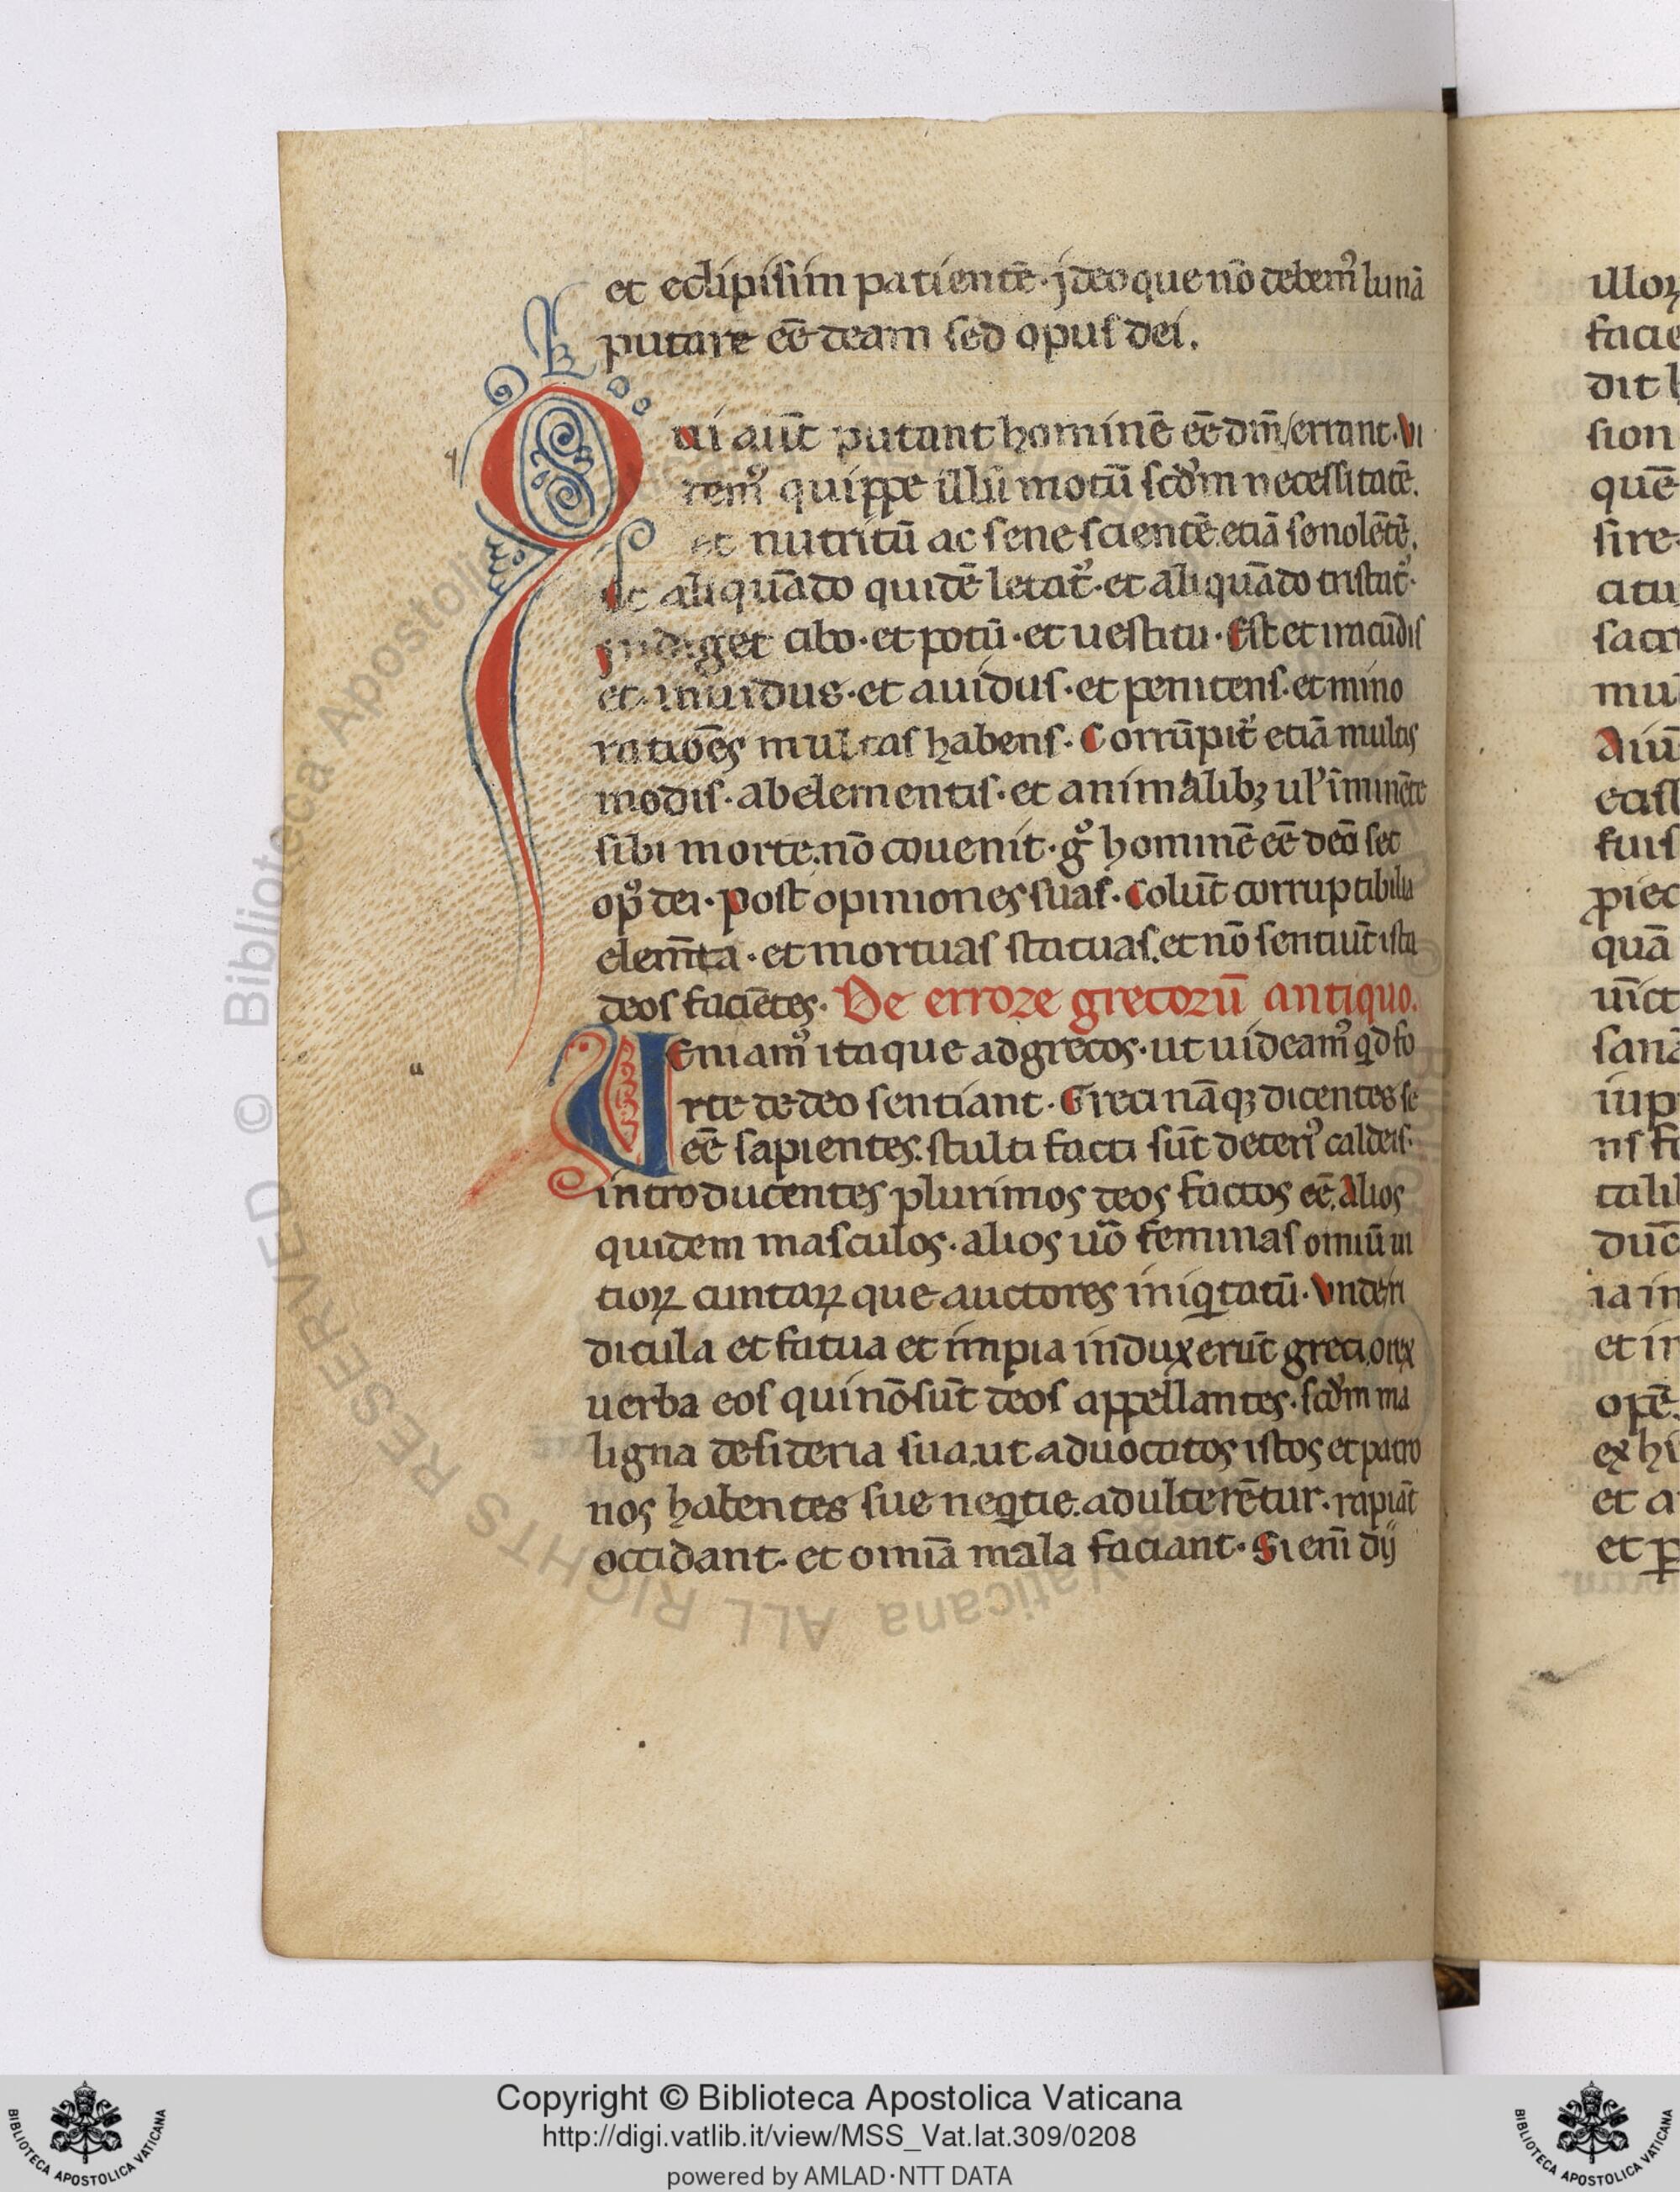 et eclipisim patientē· jdeoque nō debemꝰ lunā
putare eē deam sed opus dei.
Qui aūt putant hominē eē dm̄/errant. Vi
demꝰ quippe illū motū scd'm necessitatē.
et nutritū ac senescientē. etiā sonolētē.
Et aliquādo quidē letat᷑· et aliquādo tristat᷑·
jndiget cibo· et potū· et uestitu· Est et iracūdis
et inuidus· et auidus· et penitens· et mino
ratiōes multas habens· Corrūpit᷑ etiā multis
modis· ab elementis· et animalibꝫ ul' īminēte
sibi morte. nō couenit· gͦ hominē eē deū set
opꝰ dei· Post opiniones suas· Colūt corruptibilia
elem̄ta· et mortuas statuas. et nō sentiūt ista
deos faciētes· De errore grecorū antiquo.
Veniamꝰ itaque ad grecos· ut uideamꝰ qd fo
rte de deo sentiant· Greci nāqꝫ dicentes se
eē sapientes. stulti facti sūt deterꝰ caldeis·
introducentes plurimos deos factos eē. Alios
quidem masculos· alios uō feminas omiū ui
tioꝝ cuntaꝝ que auctores iniqͥtatū· Vnde ri
dicula et fatua et impia induxerūt greci, o rex
uerba eos qui nō sūt deos appellantes· scd'm ma
ligna desideria sua. ut aduocatos istos et patro
nos habentes sue neqͥtie. adulterētur· rapiāt
occidant· et omīa mala faciant· Si enī dij
illoꝝ
facie
dit h
sion
quē
sire
citu
sacri
mul
Aiū
fuis
quā
et in
et a
Copyright © Biblioteca Apostolica Vaticana
http://digi.vatlib.it/view/MSS_Vat.lat.309/0208
powered by AMLAD·NTT DATA
BIBLIOTECA APOSTOLICA VATICANA
BIBLIOTECA APOSTOLICA VATICANA